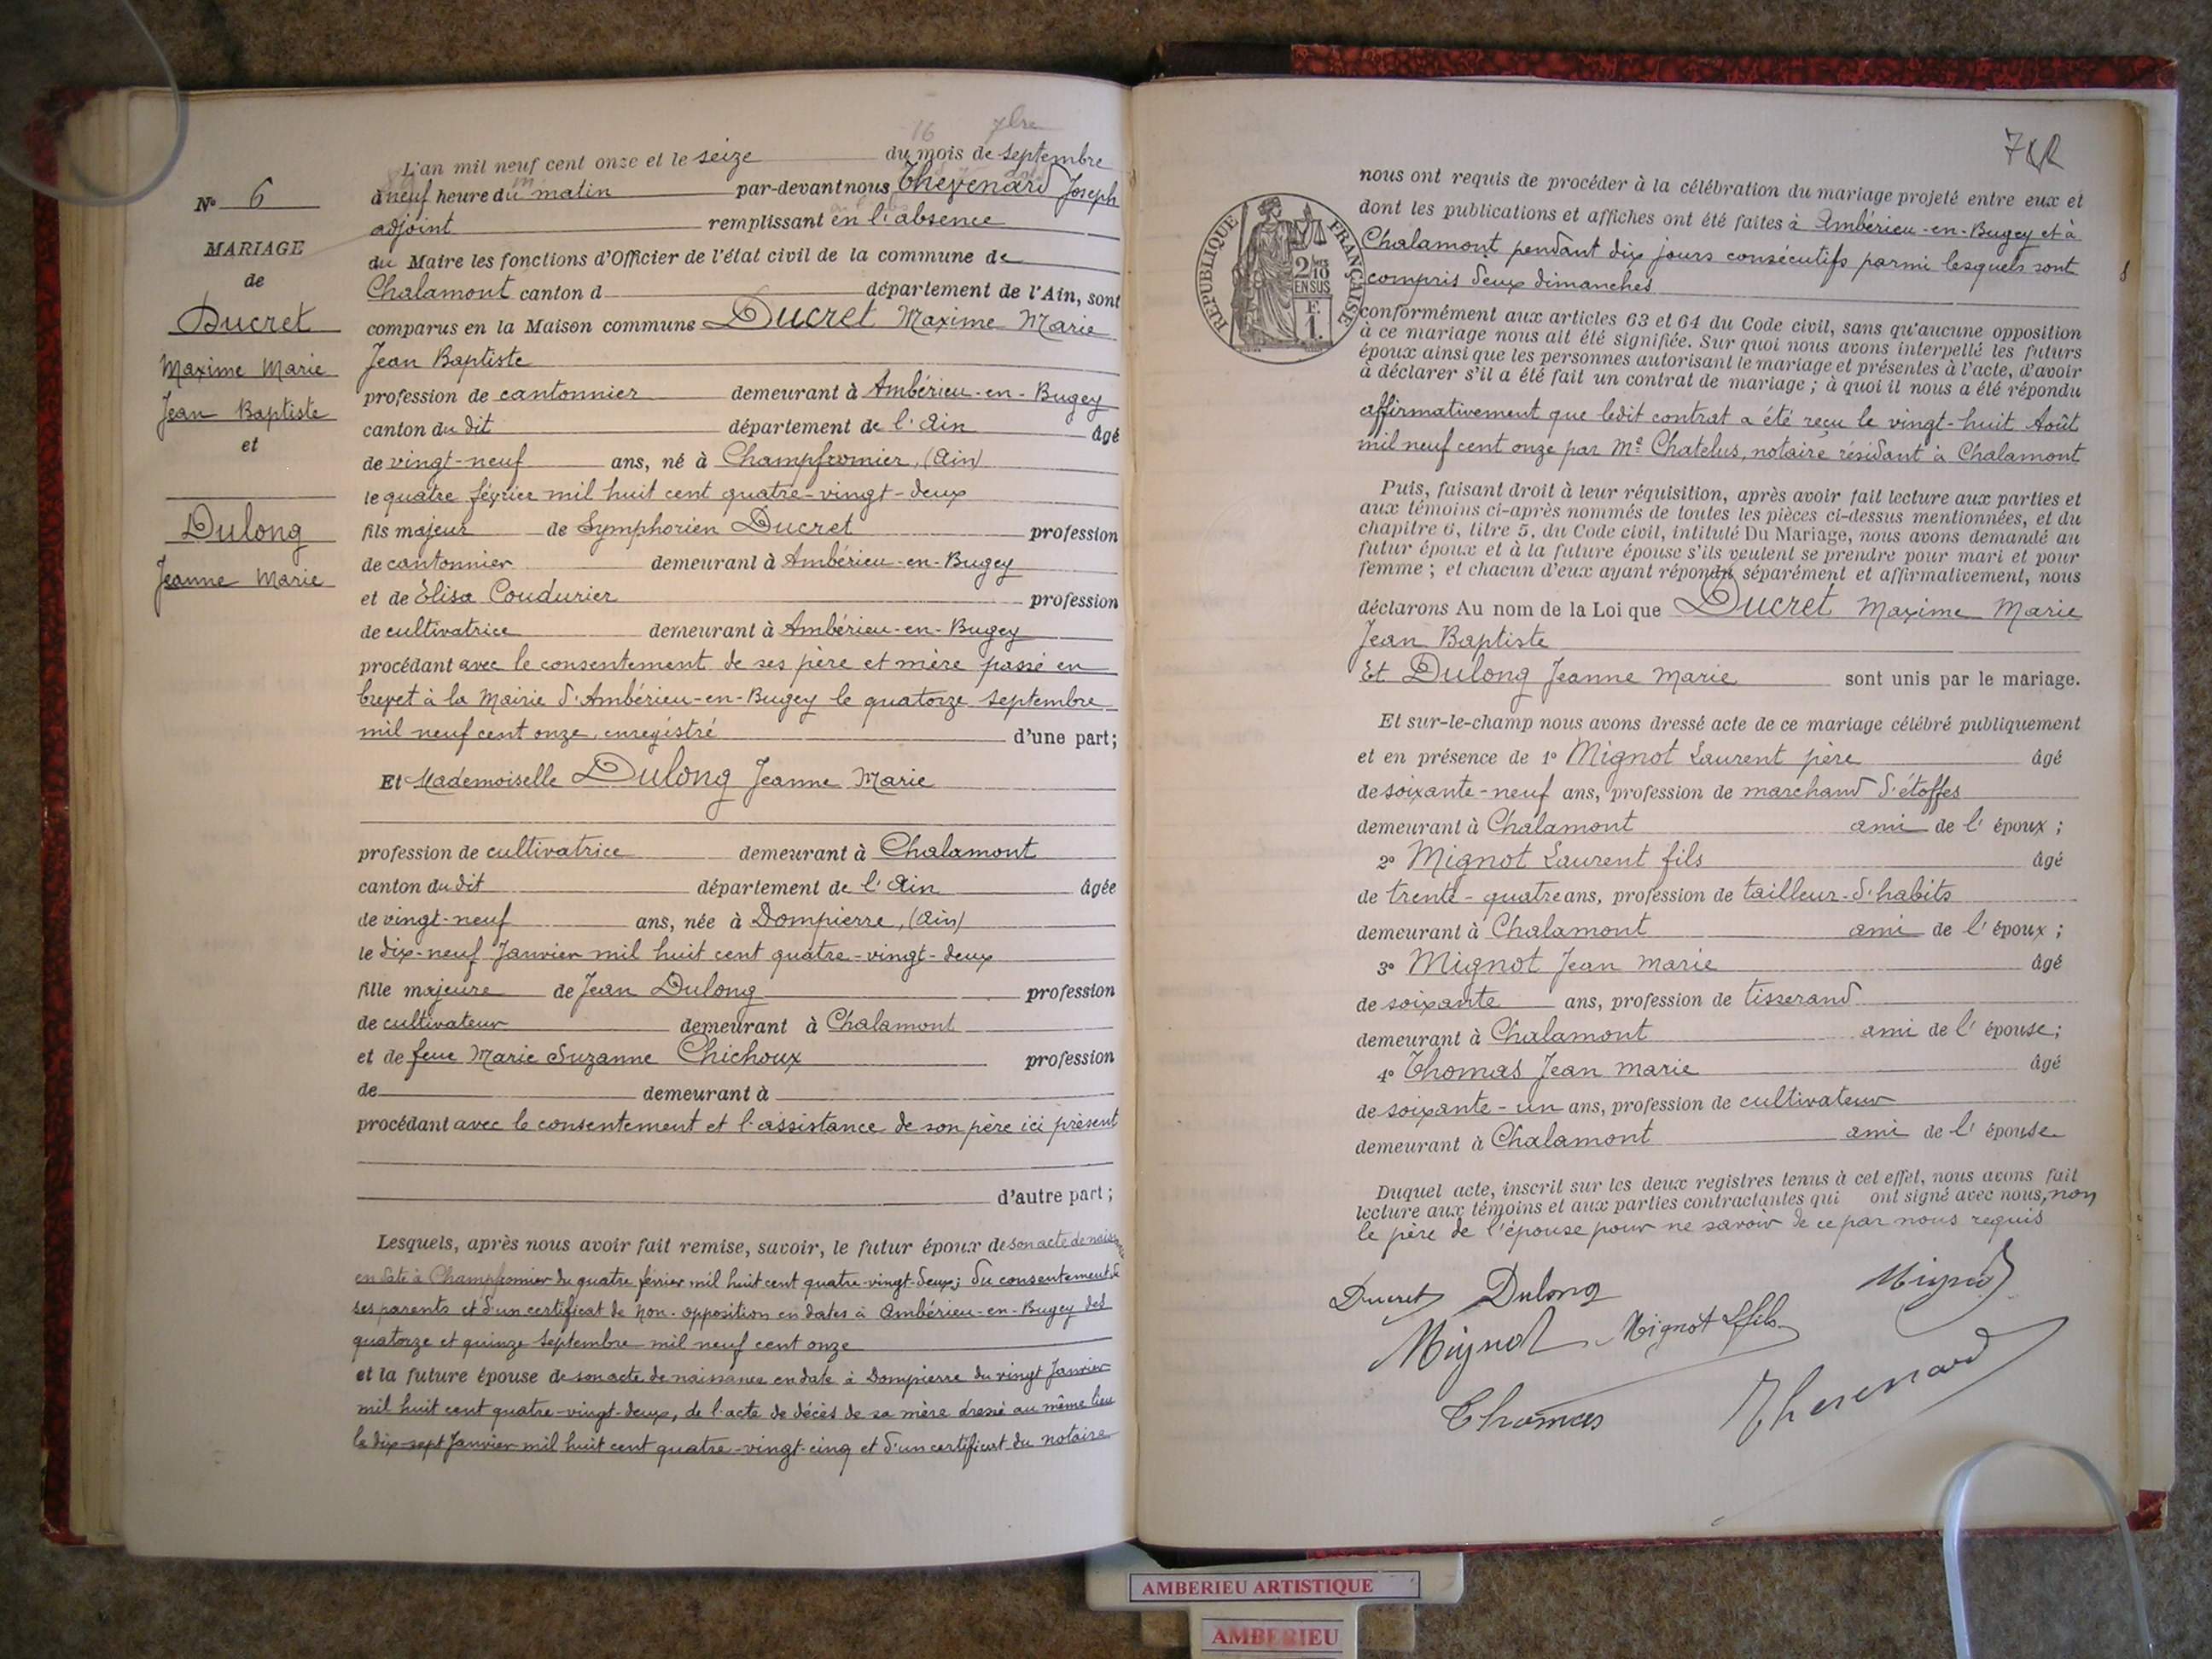 16 7bre
L'an mil neuf cent onze et le seize du mois de septembre
à neuf heure du matin par-devant nous Thévenard Joseph
adjoint remplissant en l'absence
du Maire les fonctions d'Officier de l'état civil de la commune de
Chalamont canton d département de l'Ain, sont
comparus en la Maison commune Ducret Maxime Marie
Jean Baptiste
profession de cantonnier demeurant à Ambérieu-en-Bugey
canton du dit département de l'Ain âgé
de vingt-neuf ans, né à Champfromier, (Ain)
le quatre février mil huit cent quatre-vingt-deux
fils majeur de Symphorien Ducret profession
de cantonnier demeurant à Ambérieu-en-Bugey
et de Elisa Coudurier profession
de cultivatrice demeurant à Ambérieu-en-Bugey
procédant avec le consentement de ses père et mère passé en
brevet à la Mairie d'Ambérieu-en-Bugey le quatorze septembre
mil neuf cent onze, enregistré d'une part;
Et Mademoiselle Dulong Jeanne Marie
profession de cultivatrice demeurant à Chalamont
canton du dit département de l'Ain âgée
de vingt-neuf ans, née à Dompierre, (Ain)
le dix-neuf Janvier mil huit cent quatre-vingt-deux
fille majeure de Jean Dulong profession
de cultivateur demeurant à Chalamont
et de feue Marie Suzanne Chichoux profession
de demeurant à
procédant avec le consentement et l'assistance de son père ici présent
d'autre part;
Lesquels, après nous avoir fait remise, savoir, le futur époux de son acte de naissance
en date à Champfromier du quatre février mil huit cent quatre-vingt-deux; du consentement de
ses parents et d'un certificat de non-opposition en dates à Ambérieu-en-Bugey des
quatorze et quinze septembre mil neuf cent onze
et la future épouse de son acte de naissance en date à Dompierre du vingt Janvier
mil huit cent quatre-vingt-deux, de l'acte de décès de sa mère dressé au même lieu
le dix-sept Janvier mil huit cent quatre-vingt-cinq et d'un certificat du notaire
N° 6
MARIAGE
de
Ducret
Maxime Marie
Jean Baptiste
et
Dulong
Jeanne Marie
RÉPUBLIQUE FRANÇAISE
2/10
EN SUS
nous ont requis de procéder à la célébration du mariage projeté entre eux et
dont les publications et affiches ont été faites à Ambérieu-en-Bugey et à
Chalamont pendant dix jours consécutifs parmi lesquels sont
compris deux dimanches
conformément aux articles 63 et 64 du Code civil, sans qu'aucune opposition
à ce mariage nous ait été signifiée. Sur quoi nous avons interpellé les futurs
époux ainsi que les personnes autorisant le mariage et présentes à l'acte, d'avoir
à déclarer s'il a été fait un contrat de mariage; à quoi il nous a été répondu
affirmativement que ledit contrat a été reçu le vingt-huit Août
mil neuf cent onze par Me Chatelus, notaire résidant à Chalamont
Puis, faisant droit à leur réquisition, après avoir fait lecture aux parties et
aux témoins ci-après nommés de toutes les pièces ci-dessus mentionnées, et du
chapitre 6, titre 5, du Code civil, intitulé Du Mariage, nous avons demandé au
futur époux et à la future épouse s'ils veulent se prendre pour mari et pour
femme; et chacun d'eux ayant répondu séparément et affirmativement, nous
déclarons Au nom de la Loi que Ducret Maxime Marie
Jean Baptiste
Et Dulong Jeanne Marie sont unis par le mariage.
Et sur-le-champ nous avons dressé acte de ce mariage célébré publiquement
et en présence de 1° Mignot Laurent père âgé
de soixante-neuf ans, profession de marchand d'étoffes
demeurant à Chalamont ami de l'époux;
2° Mignot Laurent fils âgé
de trente-quatre ans, profession de tailleur-d'habits
demeurant à Chalamont ami de l'époux;
3° Mignot Jean Marie âgé
de soixante ans, profession de tisserand
demeurant à Chalamont ami de l'épouse;
4° Thomas Jean Marie âgé
de soixante-un ans, profession de cultivateur
demeurant à Chalamont ami de l'épouse
Duquel acte, inscrit sur les deux registres tenus à cet effet, nous avons fait
lecture aux témoins et aux parties contractantes qui ont signé avec nous, non
le père de l'épouse pour ne savoir de ce par nous requis
Ducret Dulong Mignot
Mignot Mignot L fils
Thomas Thevenard
AMBERIEU ARTISTIQUE
AMBERIEU